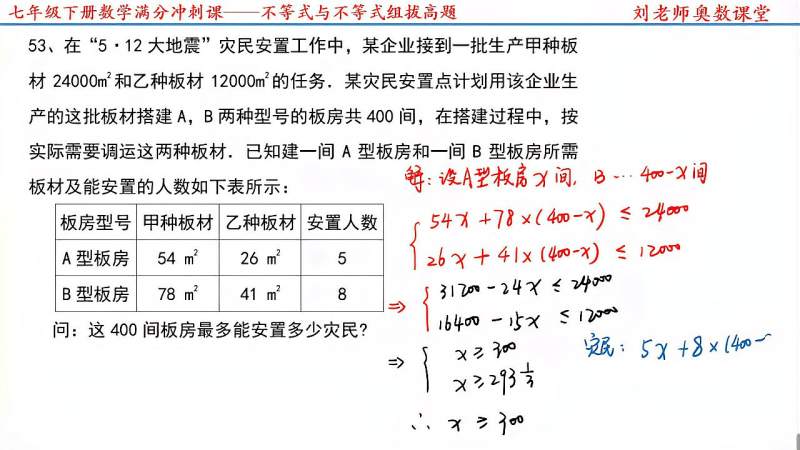 七年级下册数学满分冲刺课——不等式与不等式组拔高题
刘老师奥数课堂
53、在“5·12大地震”灾民安置工作中，某企业接到一批生产甲种板
材 24000㎡和乙种板材 12000㎡的任务．某灾民安置点计划用该企业生
产的这批板材搭建 A，B 两种型号的板房共 400 间，在搭建过程中，按
实际需要调运这两种板材．已知建一间 A 型板房和一间 B 型板房所需
板材及能安置的人数如下表所示：
板房型号 甲种板材 乙种板材 安置人数
A 型板房 54 m² 26 m² 5
B 型板房 78 m² 41 m² 8
问：这 400 间板房最多能安置多少灾民？
解：设A型板房x间，B…400-x间
54x+78×(400-x)≤24000
26x+41×(400-x)≤12000
⇒ 31200-24x≤24000
16400-15x≤12000
⇒ x≥300
x≥293⅓
∴ x≥300
灾民：5x+8×(400-